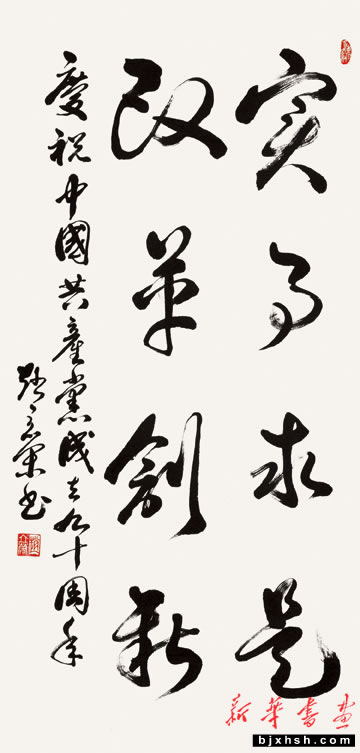 实事求是
改革創新
慶祝中國共產黨成立九十周年
新華書畫
bjxhsh.com